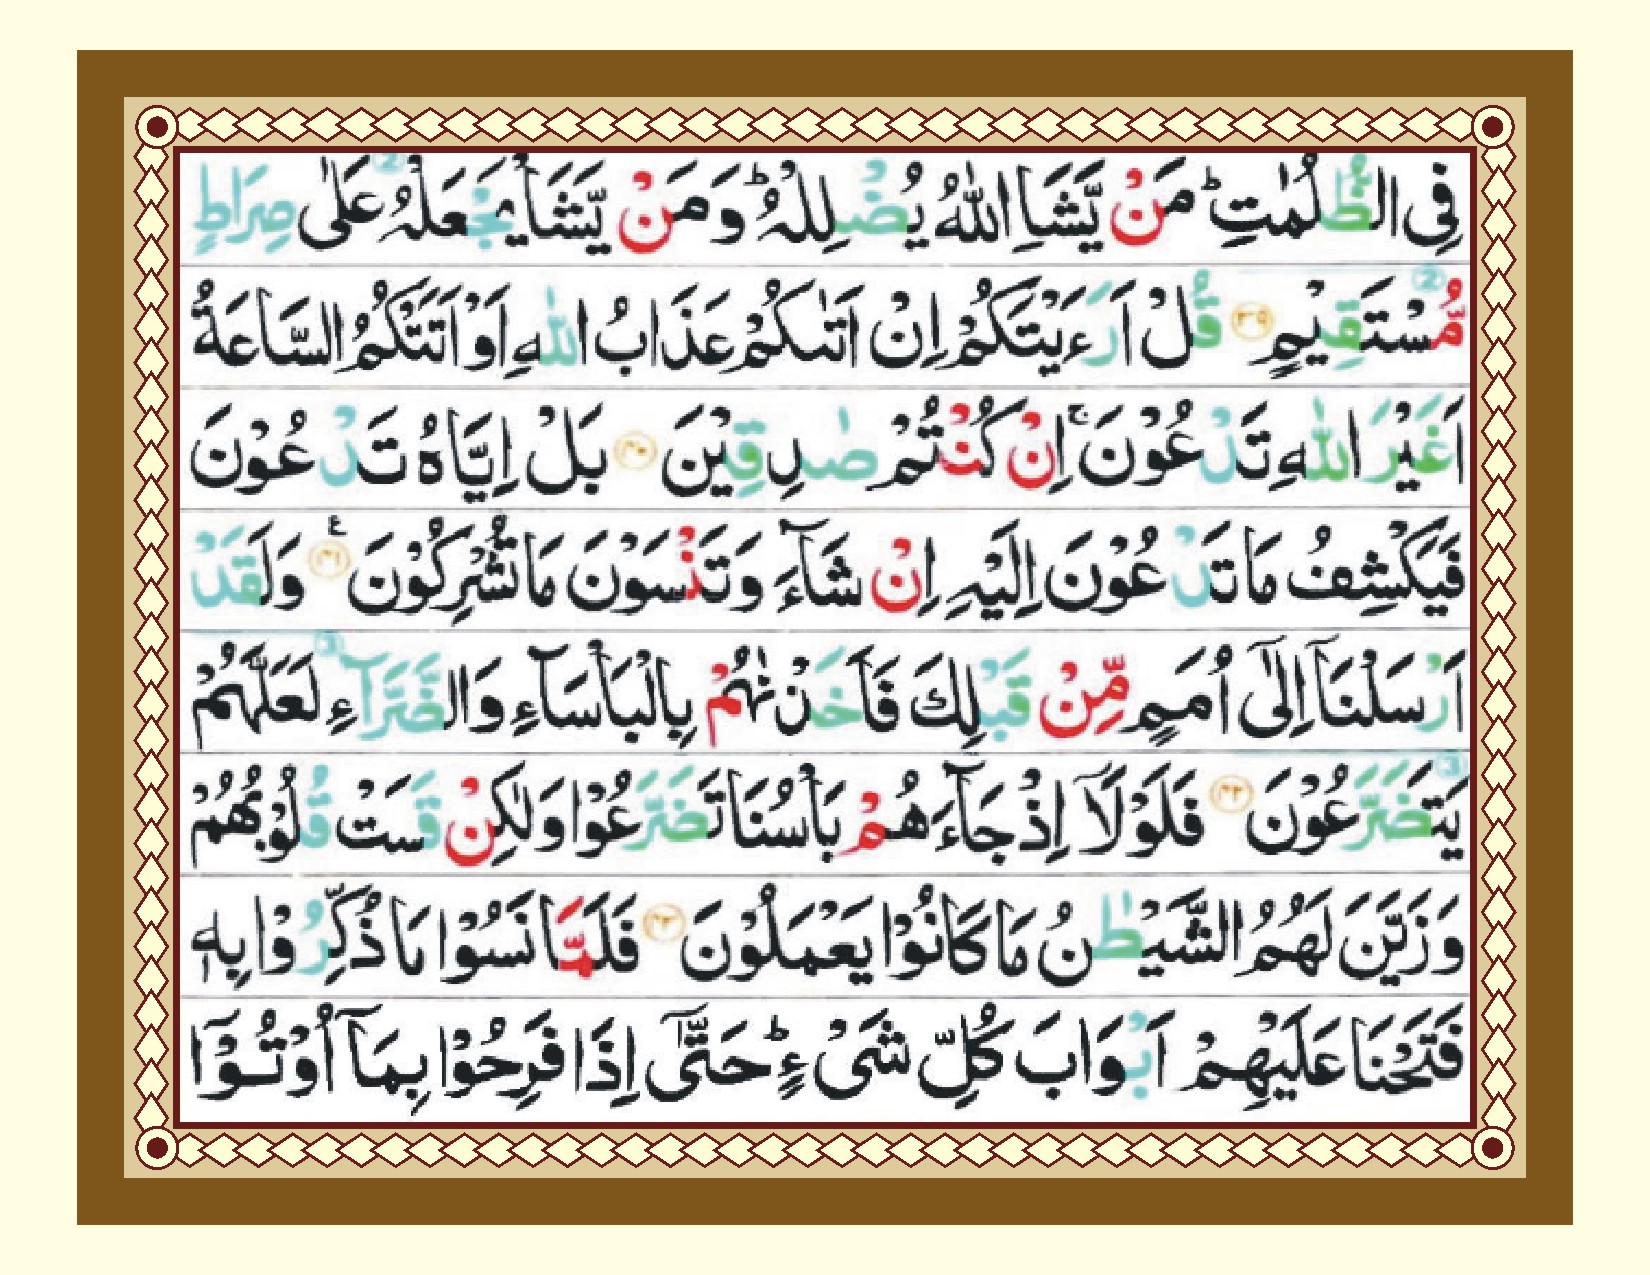 فِى الظُّلُمٰتِ ؕ مَنْ يَّشَاِ اللّٰهُ يُضْلِلْهُ ؕ وَمَنْ يَّشَاْ يَجْعَلْهُ عَلٰى صِرَاطٍ
مُّسْتَقِيْمٍ ﴿۳۹﴾ قُلْ اَرَءَيْتَكُمْ اِنْ اَتٰىكُمْ عَذَابُ اللّٰهِ اَوْ اَتَتْكُمُ السَّاعَةُ
اَغَيْرَ اللّٰهِ تَدْعُوْنَ ۚ اِنْ كُنْتُمْ صٰدِقِيْنَ ﴿۴۰﴾ بَلْ اِيَّاهُ تَدْعُوْنَ
فَيَكْشِفُ مَا تَدْعُوْنَ اِلَيْهِ اِنْ شَآءَ وَتَنْسَوْنَ مَا تُشْرِكُوْنَ ﴿۴۱﴾ ع وَلَقَدْ
اَرْسَلْنَآ اِلٰٓى اُمَمٍ مِّنْ قَبْلِكَ فَاَخَذْنٰهُمْ بِالْبَاْسَآءِ وَالضَّرَّآءِ لَعَلَّهُمْ
يَتَضَرَّعُوْنَ ﴿۴۲﴾ فَلَوْلَاۤ اِذْ جَآءَهُمْ بَاْسُنَا تَضَرَّعُوْا وَلٰكِنْ قَسَتْ قُلُوْبُهُمْ
وَزَيَّنَ لَهُمُ الشَّيْطٰنُ مَا كَانُوْا يَعْمَلُوْنَ ﴿۴۳﴾ فَلَمَّا نَسُوْا مَا ذُكِّرُوْا بِهٖ
فَتَحْنَا عَلَيْهِمْ اَبْوَابَ كُلِّ شَىْءٍ ؕ حَتّٰٓى اِذَا فَرِحُوْا بِمَآ اُوْتُوْٓا